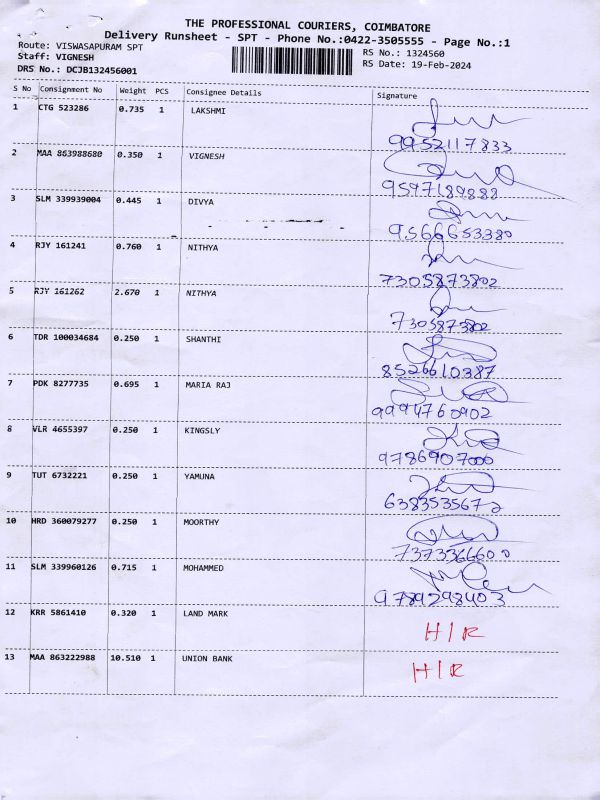 THE PROFESSIONAL COURIERS, COIMBATORE
Delivery Runsheet - SPT - Phone No.:0422-3505555 - Page No.:1
Route: VISWASAPURAM SPT
Staff: VIGNESH
DRS No.: DCJB132456001
RS No.: 1324560
RS Date: 19-Feb-2024
S No Consignment No Weight PCS Consignee Details Signature
1 CTG 523286 0.735 1 LAKSHMI
9952117833
2 MAA 863988680 0.350 1 VIGNESH
9597189888
3 SLM 339939004 0.445 1 DIVYA
9566653380
4 RJY 161241 0.760 1 NITHYA
7305873802
5 RJY 161262 2.670 1 NITHYA
7305873802
6 TDR 100034684 0.250 1 SHANTHI
8526610387
7 PDK 8277735 0.695 1 MARIA RAJ
9994760902
8 VLR 4655397 0.250 1 KINGSLY
9786907000
9 TUT 6732221 0.250 1 YAMUNA
6383535672
10 HRD 360079277 0.250 1 MOORTHY
7373366600
11 SLM 339960126 0.715 1 MOHAMMED
9789298403
12 KRR 5861410 0.320 1 LAND MARK H/R
13 MAA 863222988 10.510 1 UNION BANK H/R